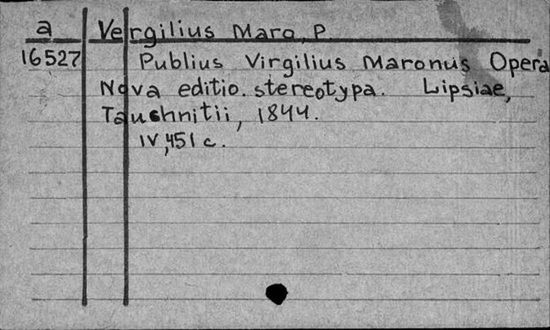 a Vergilius Maro, P.
16527 Publius Virgilius Maronus Opera
Nova editio. stereotypa. Lipsiae,
Tauchnitii, 1844.
IV, 451 c.